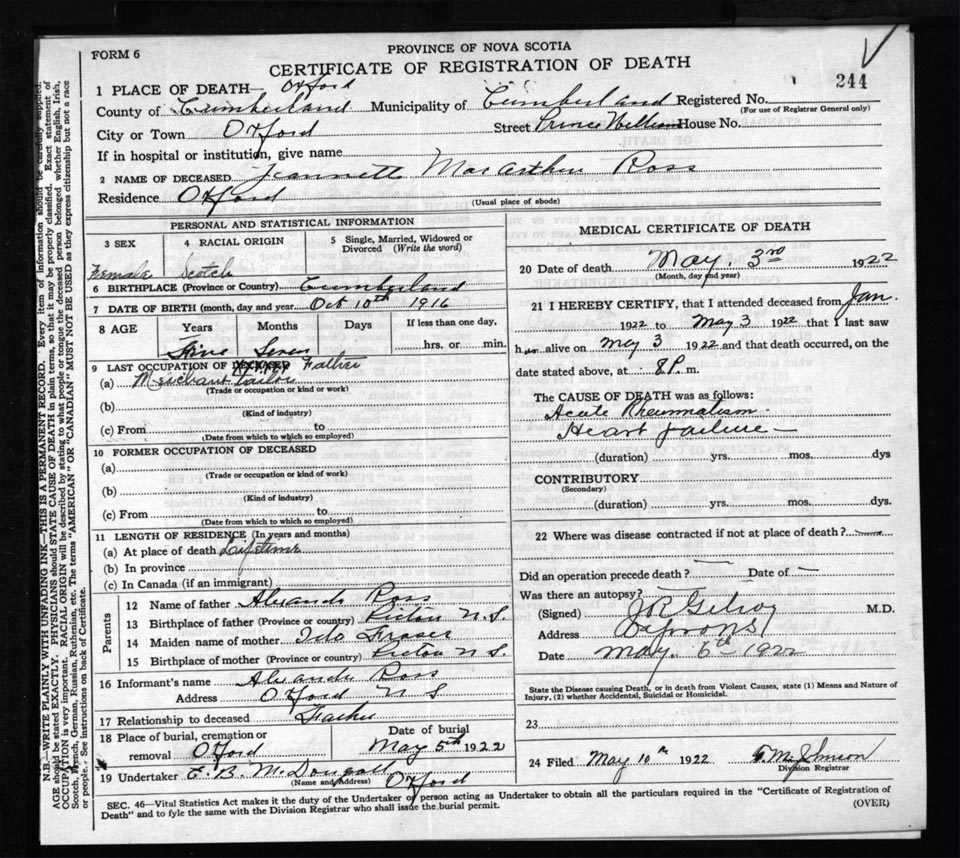 FORM 6
PROVINCE OF NOVA SCOTIA
CERTIFICATE OF REGISTRATION OF DEATH
244
1 PLACE OF DEATH— Oxford
County of Cumberland Municipality of Cumberland Registered No.
(For use of Registrar General only)
City or Town Oxford Street Prince William House No.
If in hospital or institution, give name
2 NAME OF DECEASED Jeannette MacArthur Ross
Residence Oxford (Usual place of abode)
PERSONAL AND STATISTICAL INFORMATION
3 SEX 4 RACIAL ORIGIN 5 Single, Married, Widowed or Divorced (Write the word)
Female Scotch
6 BIRTHPLACE (Province or Country) Cumberland
7 DATE OF BIRTH (month, day and year Oct 10th 1916
8 AGE Years Months Days If less than one day,
Five Seven hrs. or min.
9 LAST OCCUPATION OF DECEASED Father
(a) Merchant Tailor
(Trade or occupation or kind or work)
(b)
(Kind of industry)
(c) From to
(Date from which to which so employed)
10 FORMER OCCUPATION OF DECEASED
(a)
(Trade or occupation or kind of work)
(b)
(Kind of industry)
(c) From to
(Date from which to which so employed)
11 LENGTH OF RESIDENCE (In years and months)
(a) At place of death Lifetime
(b) In province
(c) In Canada (if an immigrant)
Parents
12 Name of father Alexander Ross
13 Birthplace of father (Province or country) Pictou N.S.
14 Maiden name of mother Ida Fraser
15 Birthplace of mother (Province or country) Pictou N.S.
16 Informant's name Alexander Ross
Address Oxford N S
17 Relationship to deceased Father
18 Place of burial, cremation or removal Oxford
Date of burial May 5th 1922
19 Undertaker E. B. McDougall Oxford
(Name and Address)
MEDICAL CERTIFICATE OF DEATH
20 Date of death May 3rd 1922
(Month, day and year)
21 I HEREBY CERTIFY, that I attended deceased from Jan.
1922 to May 3 1922 that I last saw
her alive on May 3 1922 and that death occurred, on
date stated above, at 8 P. m.
The CAUSE OF DEATH was as follows:
Acute Rheumatism
Heart failure —
(duration) yrs. mos. dys
CONTRIBUTORY
(Secondary)
(duration) yrs. mos. dys.
22 Where was disease contracted if not at place of death?
Did an operation precede death? — Date of —
Was there an autopsy?
(Signed) J R Gilroy M.D.
Address Oxford N S
Date May 6th 1922
State the Disease causing Death, or in death from Violent Causes, state (1) Means and Nature of
Injury, (2) whether Accidental, Suicidal or Homicidal.
23
24 Filed May 10th 1922
Division Registrar
SEC. 46—Vital Statistics Act makes it the duty of the Undertaker or person acting as Undertaker to obtain all the particulars required in the "Certificate of Registration of
Death" and to fyle the same with the Division Registrar who shall issue the burial permit.
(OVER)
N.B.—WRITE PLAINLY WITH UNFADING INK—THIS IS A PERMANENT RECORD. Every item of information should be carefully supplied.
AGE should be stated EXACTLY. PHYSICIANS should STATE CAUSE OF DEATH in plain terms, so that it may be properly classified. Exact statement of
OCCUPATION is very important. RACIAL ORIGIN will be described by stating to what people or tongue the deceased person belonged whether English, Irish,
Scotch, French, German, Russian, Ruthenian, etc. The terms "AMERICAN" OR "CANADIAN" MUST NOT BE USED as they express citizenship but not a race
or people. See instructions on back of Certificate.